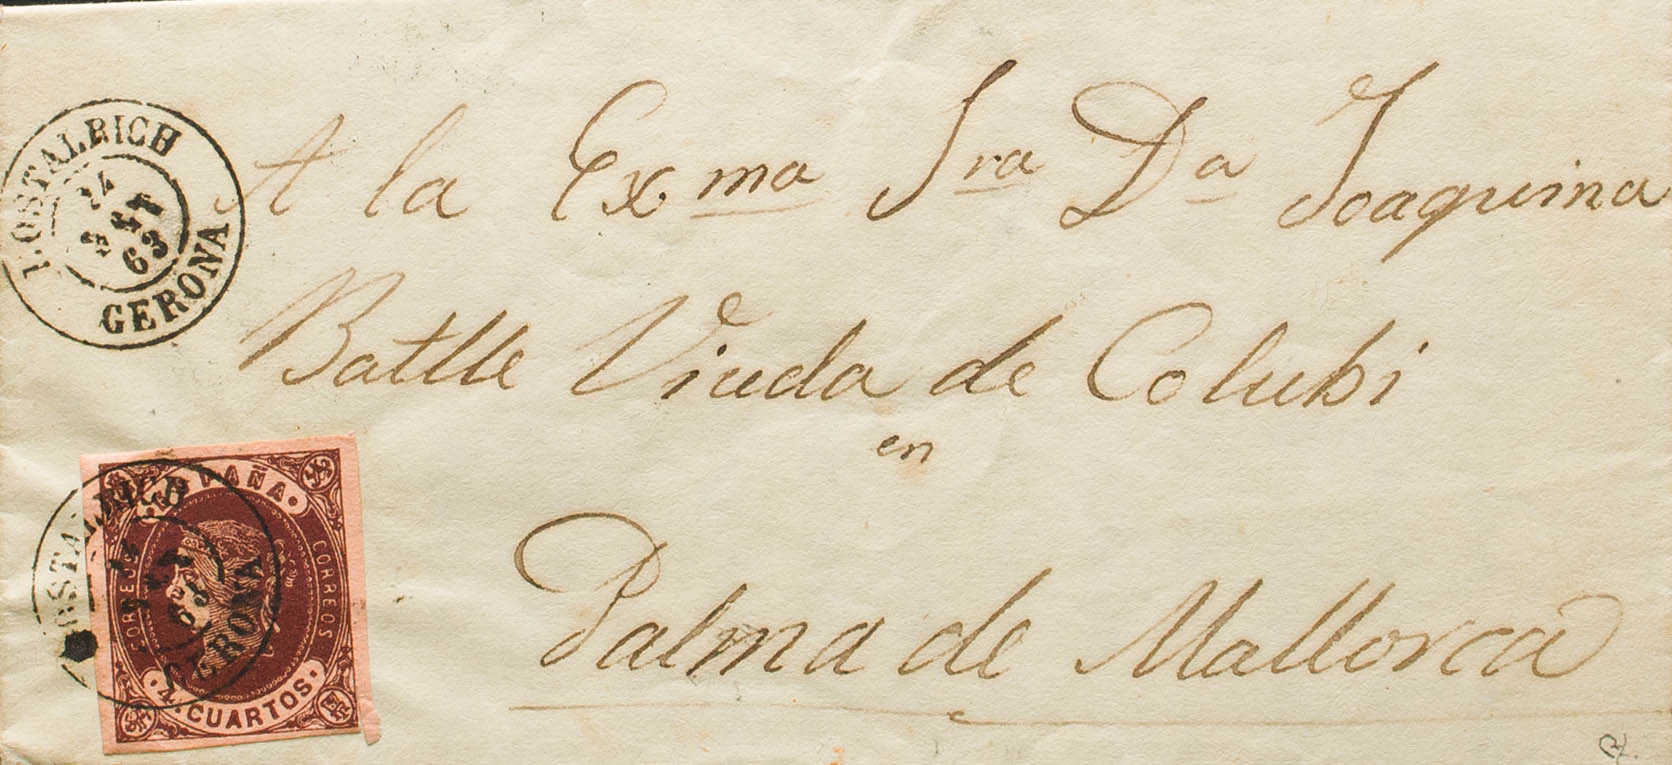 HOSTALRICH
24
SET
63
GERONA
A la Exma Sra Da Joaquina
Batlle Viuda de Colubi
en
Palma de Mallorca
HOSTALRICH
63
GERONA
ESPAÑA
CORREOS
CORREOS
4 CUARTOS